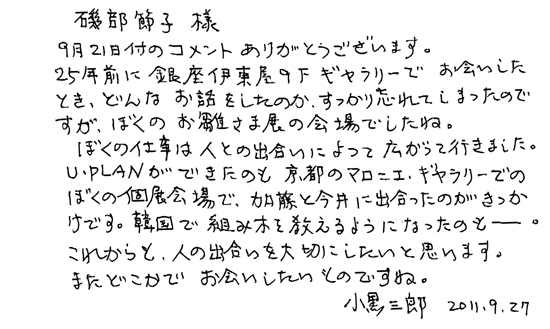 磯部節子 様
9月21日付のコメントありがとうございます。
25年前に銀座伊東屋9Fギャラリーでお会いした
とき、どんなお話をしたのか、すっかり忘れてしまったので
すが、ぼくのお雛さま展の会場でしたね。
ぼくの仕事は人との出合いによって広がって行きました。
U・PLANができたのも京都のマロニエ・ギャラリーでの
ぼくの個展会場で、加藤と今井に出合ったのがきっか
けです。韓国で組み木を教えるようになったのも──。
これからも、人の出合いを大切にしたいと思います。
またどこかでお会いしたいものですね。
小黒三郎 2011.9.27